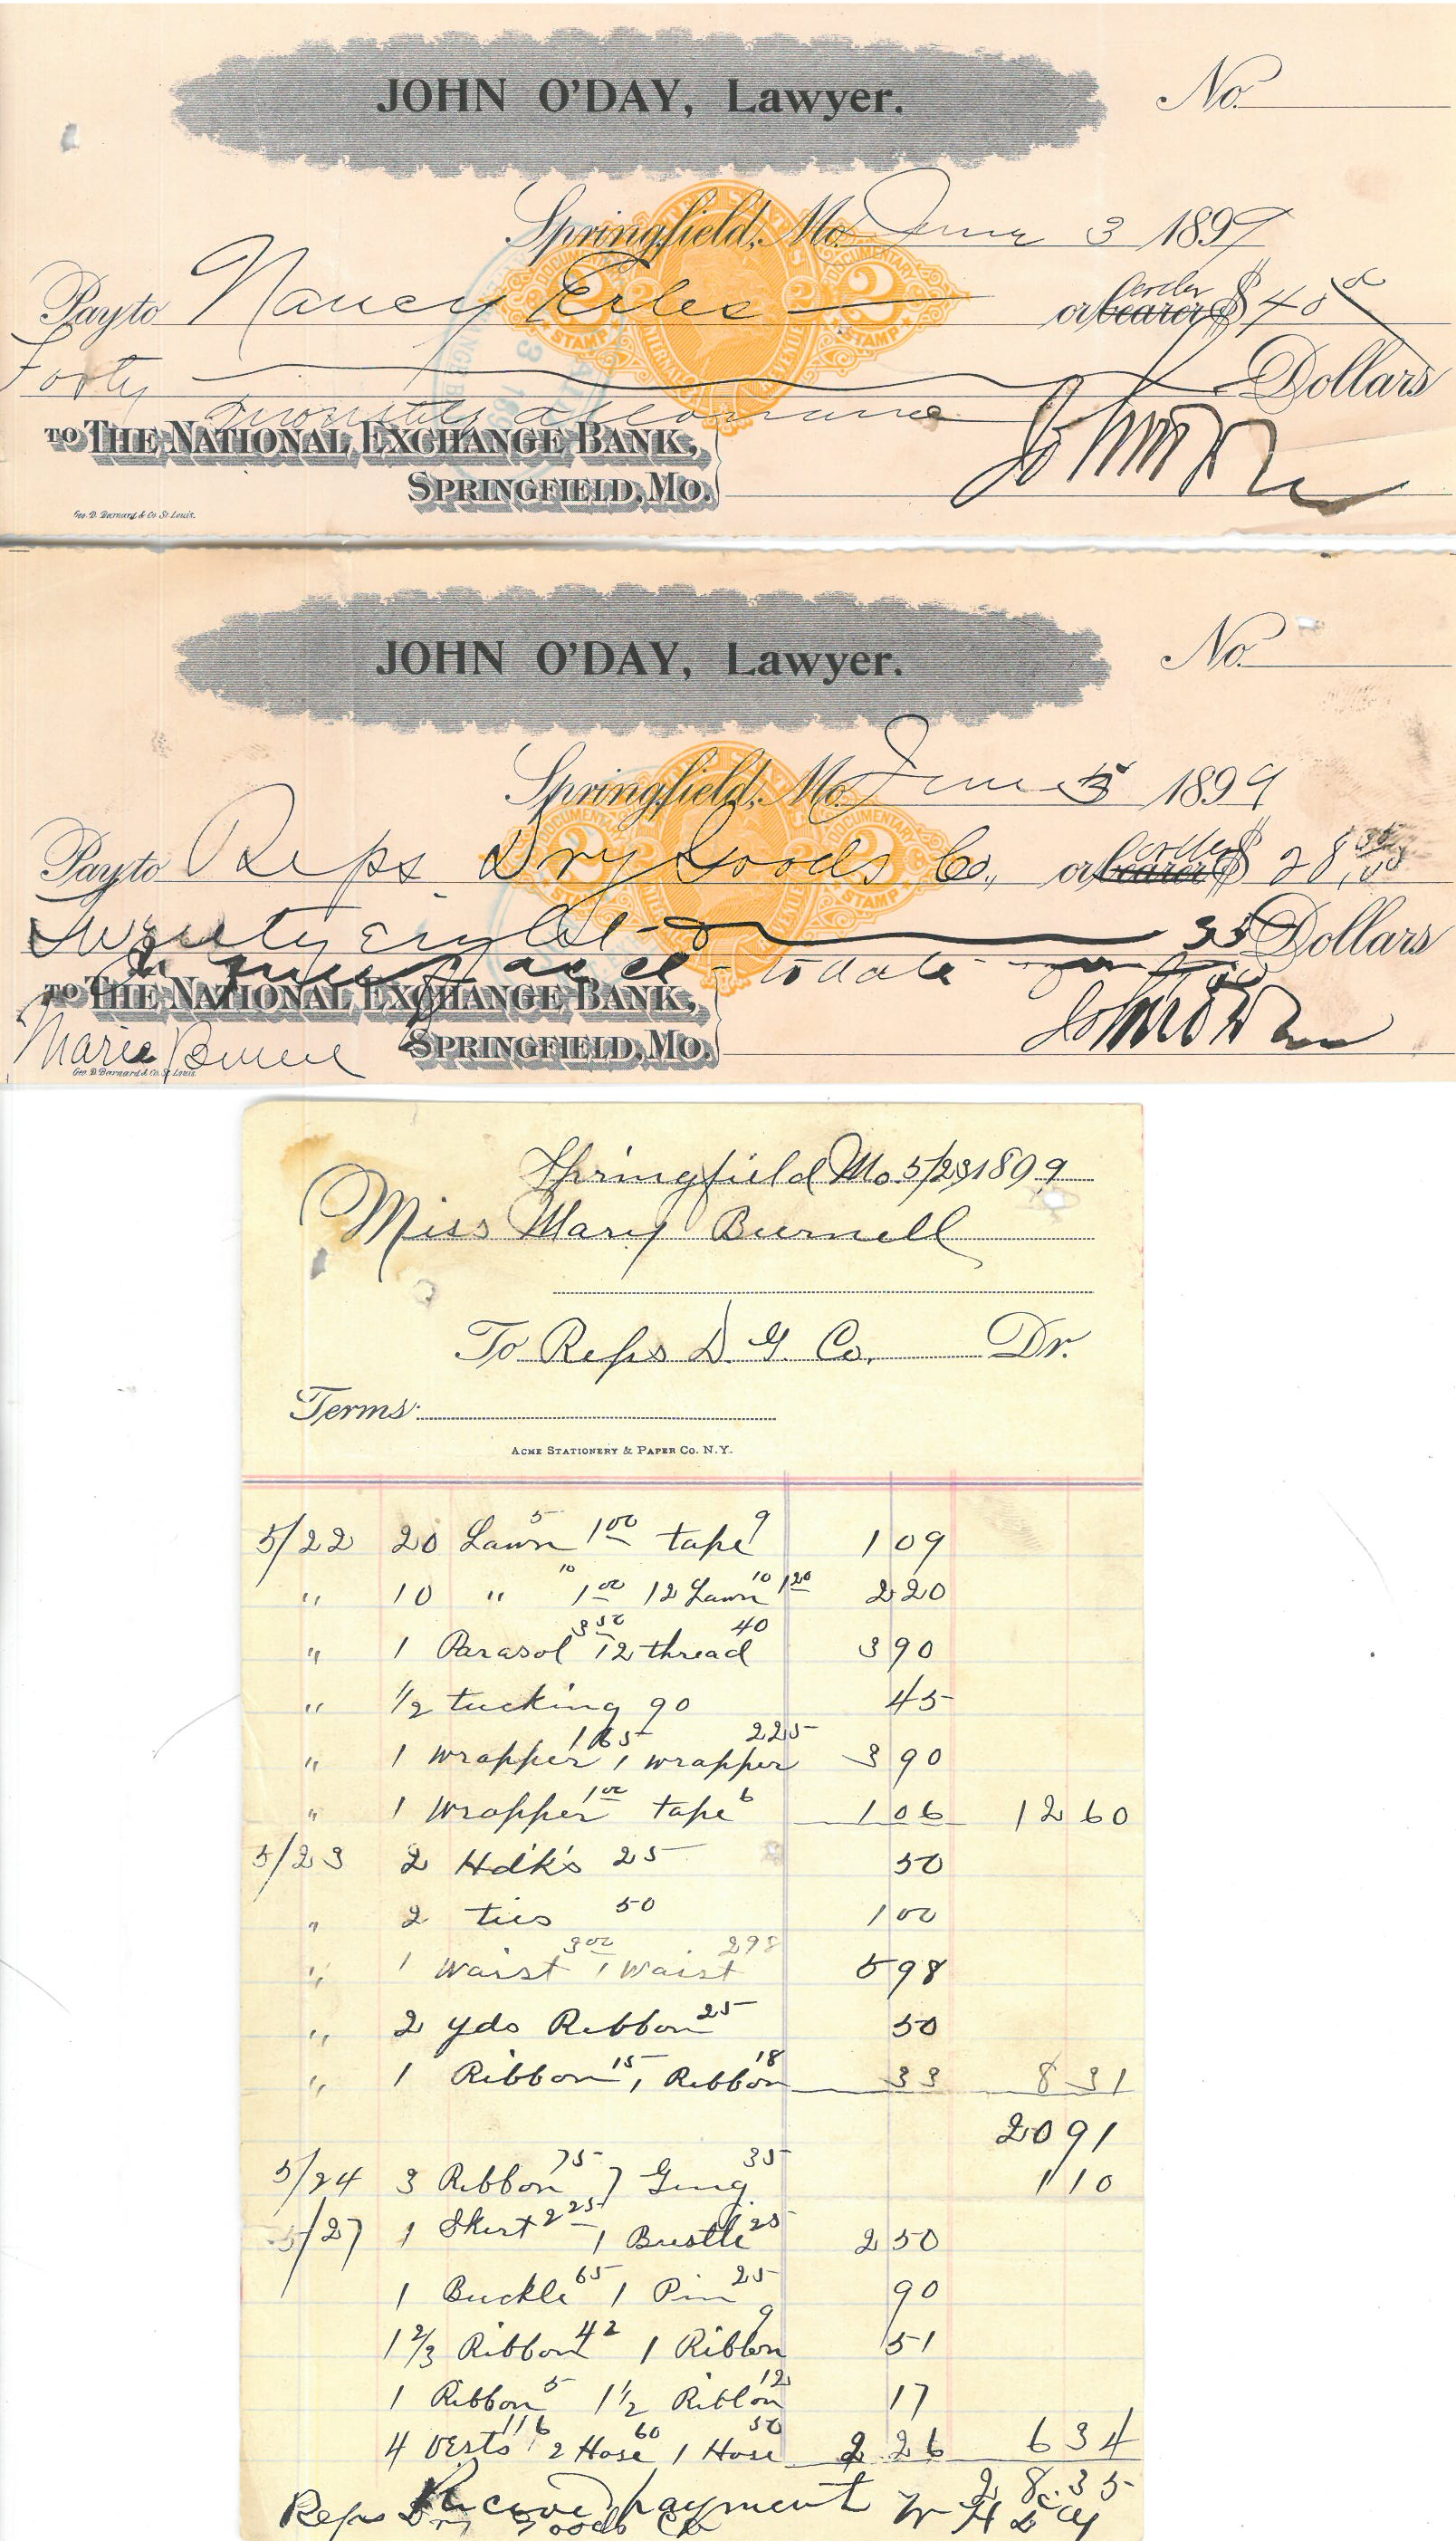 JOHN O'DAY, Lawyer.
No.
Springfield, Mo. June 3 1899
Pay to Nancy Erles or bearer order $ 40 00
Forty Dollars
monthly allowance
TO THE NATIONAL EXCHANGE BANK,
SPRINGFIELD, MO.
John O'Day
Geo. D. Barnard & Co. St. Louis.
JOHN O'DAY, Lawyer.
No.
Springfield, Mo. June 5 1899
Pay to Reps Dry Goods Co., or bearer order $ 28,35
Twenty Eight 35 Dollars
In full of acct to date
TO THE NATIONAL EXCHANGE BANK,
SPRINGFIELD, MO.
John O'Day
Marie
Geo. D. Barnard & Co. St. Louis.
Springfield Mo. 5/29 1899
Miss Mary Burnell
To Reps D. G. Co. Dr.
Terms:
ACME STATIONERY & PAPER CO. N.Y.
5/22 20 Lawn 5 1 00 tape 9 1 09
" 10 " 10 1 00 12 Lawn 10 1 20 2 20
" 1 Parasol 3 50 12 thread 40 3 90
" 1/2 tucking 90 45
" 1 wrapper 1 65 1 wrapper 2 25 3 90
" 1 wrapper 1 00 tape 6 1 06 12 60
5/23 2 Hdk's 25 50
" 2 ties 50 1 00
" 1 Waist 3 00 1 Waist 2 98 5 98
" 2 yds Ribbon 25 50
" 1 Ribbon 15 1 Ribbon 18 33 8 31
20 91
5/24 3 Ribbon 75 7 Ging. 35 1 10
5/27 1 Skirt 2 25 1 Bustle 25 2 50
1 Buckle 65 1 Pin 25 90
1 2/3 Ribbon 42 1 Ribbon 9 51
1 Ribbon 5 1 1/2 Ribbon 12 17
4 vests 1 16 2 Hose 60 1 Hose 50 2 26 6 34
28.35
Received payment
Reps Dry Goods Co